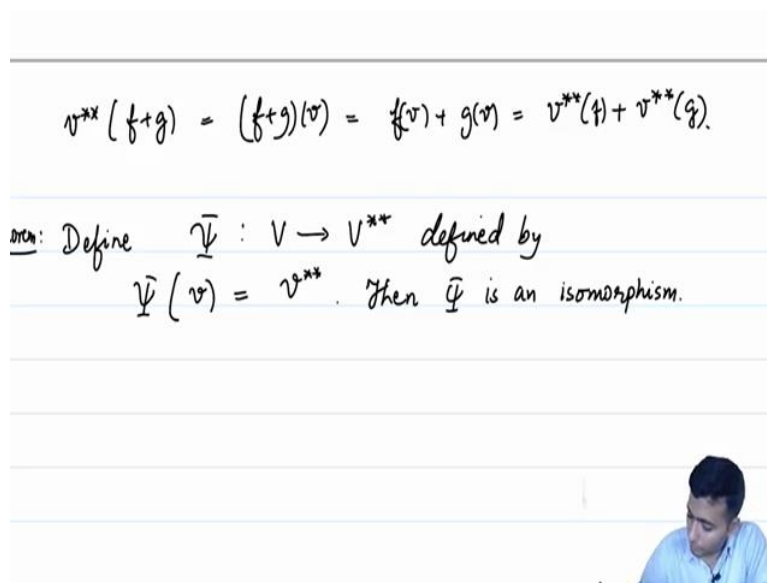 v** (f+g) = (f+g)(v) = f(v) + g(v) = v**(f) + v**(g).
orem: Define Ψ : V → V** defined by
Ψ(v) = v**. Then Ψ is an isomorphism.